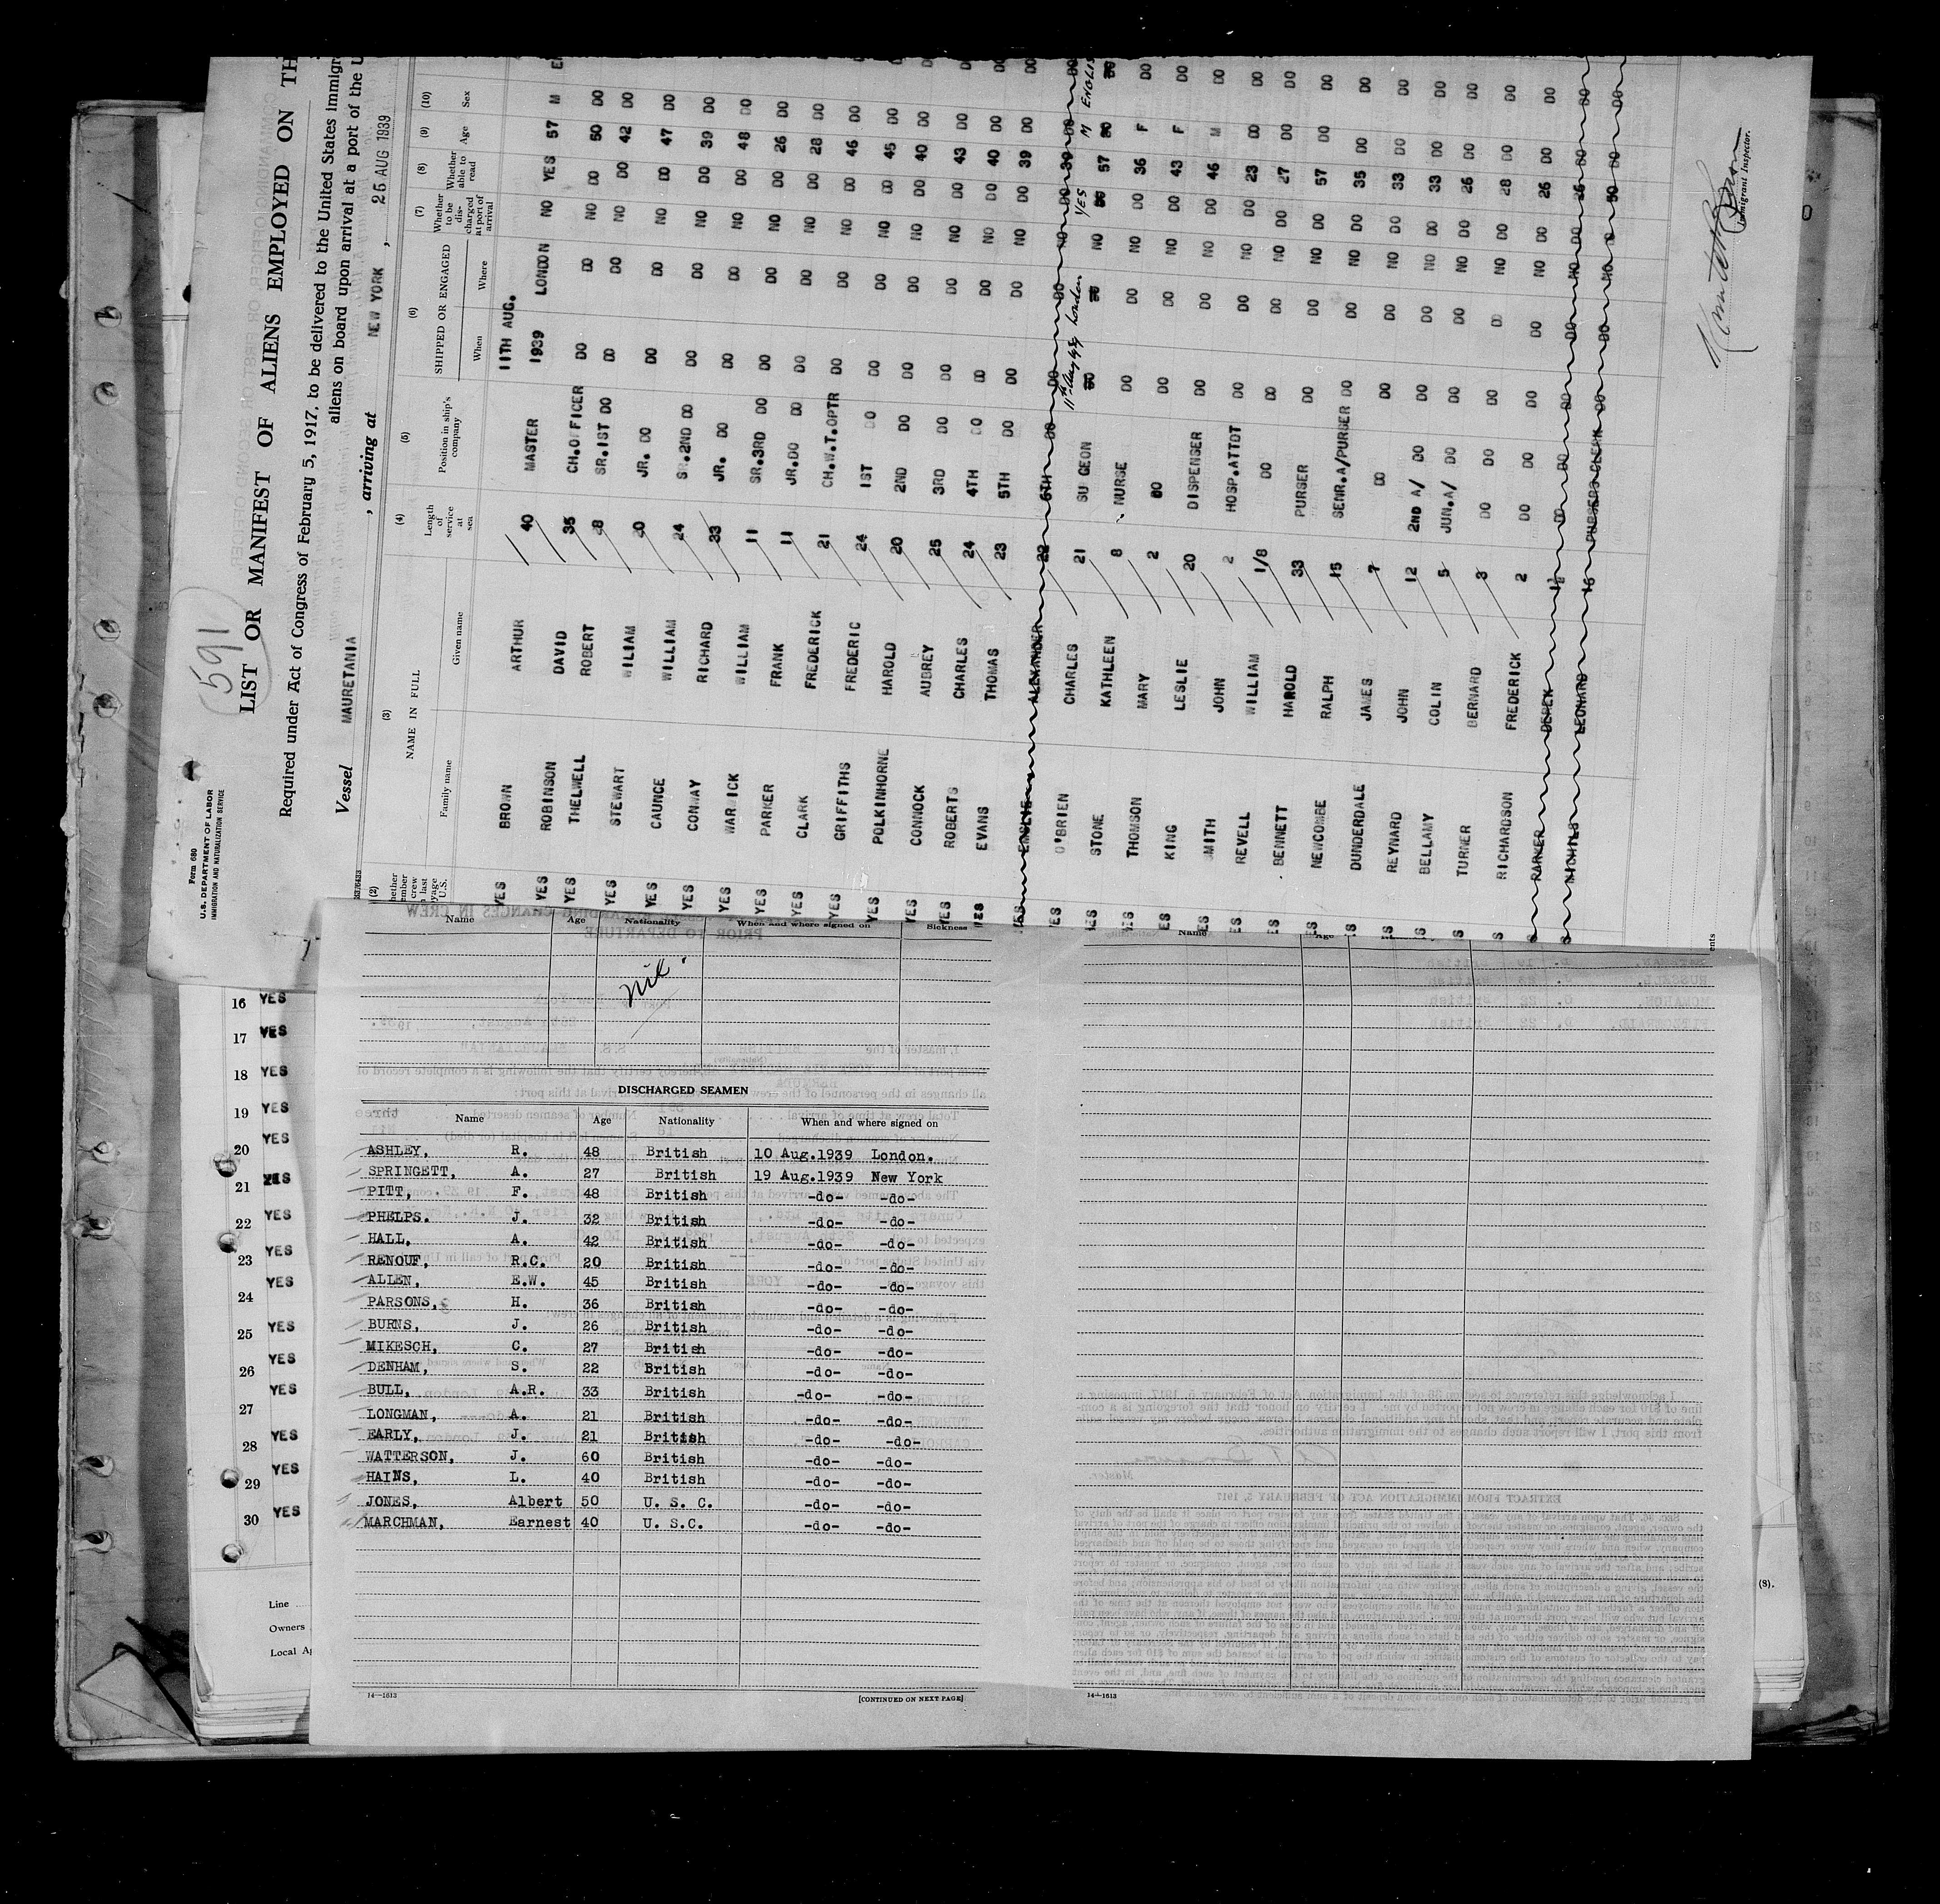 591
Form 680
U.S. DEPARTMENT OF LABOR
IMMIGRATION AND NATURALIZATION SERVICE
LIST OR MANIFEST OF ALIENS EMPLOYED ON TH
Required under Act of Congress of February 5, 1917, to be delivered to the United States immigr
aliens on board upon arrival at a port of the U
Vessel MAURETANIA , arriving at NEW YORK , 25 AUG 1939
(2) (3) (4) (5) (6) (7) (8) (9) (10)
NAME IN FULL Length of service at sea Position in ship's company SHIPPED OR ENGAGED Whether to be discharged at port of arrival Whether able to read Age Sex
Family name Given name When Where
11TH AUG.
YES BROWN ARTHUR 40 MASTER 1939 LONDON NO YES 57 M
YES ROBINSON DAVID 35 CH.OFFICER DO DO NO DO 50 DO
YES THELWELL ROBERT SR.1ST DO DO DO NO DO 42 DO
YES STEWART WILIAM JR. DO DO DO NO DO 47 DO
YES CAUNCE WILLIAM 24 SR.2ND DO DO DO NO DO 39 DO
YES CONWAY RICHARD 33 JR. DO DO DO NO DO 48 DO
YES WARWICK WILLIAM 11 SR.3RD DO DO DO NO DO 26 DO
YES PARKER FRANK 11 JR.DO DO DO DO NO DO 28 DO
YES CLARK FREDERICK 21 CH.W.T.OPTR DO DO NO DO 46 DO
YES GRIFFITHS FREDERIC 24 1ST DO DO DO NO DO 45 DO
YES POLKINHORNE HAROLD 20 2ND DO DO DO NO DO 40 DO
YES CONNOCK AUBREY 25 3RD DO DO DO NO DO 43 DO
YES ROBERTS CHARLES 24 4TH DO DO DO NO DO 40 DO
YES EVANS THOMAS 23 5TH DO DO DO NO DO 39 DO
ALEXANDER 22 6TH DO DO DO NO DO 30 DO
YES O'BRIEN CHARLES 21 SURGEON 11th Aug 39 London NO YES 57 M ENGLIS
STONE KATHLEEN 8 NURSE DO DO NO DO 36 F DO
THOMSON MARY 2 DO DO DO NO DO 43 F DO
KING LESLIE 20 DISPENSER DO DO NO DO 46 M DO
SMITH JOHN 2 HOSP.ATTDT DO DO NO DO 23 DO DO
REVELL WILLIAM 1/8 DO DO DO NO DO 27 DO DO
BENNETT HAROLD 33 PURSER DO DO NO DO 57 DO DO
NEWCOMBE RALPH 15 SENR.A/PURSER DO DO NO DO 35 DO DO
DUNDERDALE JAMES 7 DO DO DO NO DO 33 DO DO
REYNARD JOHN 12 2ND A/ DO DO DO NO DO 33 DO DO
BELLAMY COLIN 5 JUN.A/ DO DO DO NO DO 26 DO DO
TURNER BERNARD 3 DO DO DO NO DO 28 DO DO
RICHARDSON FREDERICK 2 DO DO DO NO DO 26 DO DO
PARKER DEREK DO DO DO NO DO DO DO
LEONARD 16 PURSERS CLERK DO DO NO DO DO DO
Immigrant Inspector.
Name Age Nationality When and where signed on Sickness
nil.
DISCHARGED SEAMEN
Name Age Nationality When and where signed on
ASHLEY, R. 48 British 10 Aug.1939 London.
SPRINGETT, A. 27 British 19 Aug.1939 New York
PITT, F. 48 British -do- -do-
PHELPS. J. 32 British -do- -do-
HALL, A. 42 British -do- -do-
RENOUF, R.C. 20 British -do- -do-
ALLEN, E.W. 45 British -do- -do-
PARSONS, H. 36 British -do- -do-
BURNS, J. 26 British -do- -do-
MIKESCH, C. 27 British -do- -do-
DENHAM, S. 22 British -do- -do-
BULL, A.R. 33 British -do- -do-
LONGMAN, A. 21 British -do- -do-
EARLY, J. 21 British -do- -do-
WATTERSON, J. 60 British -do- -do-
HAINS, L. 40 British -do- -do-
JONES, Albert 50 U. S. C. -do- -do-
MARCHMAN, Earnest 40 U. S.C. -do- -do-
14—1613 [CONTINUED ON NEXT PAGE]
Name Age
14—1613
16 YES
17 YES
18 YES
19 YES
20 YES
21 YES
22 YES
23 YES
24 YES
25 YES
26 YES
27 YES
28 YES
29 YES
30 YES
Line
Owners
Local Ag
(8).